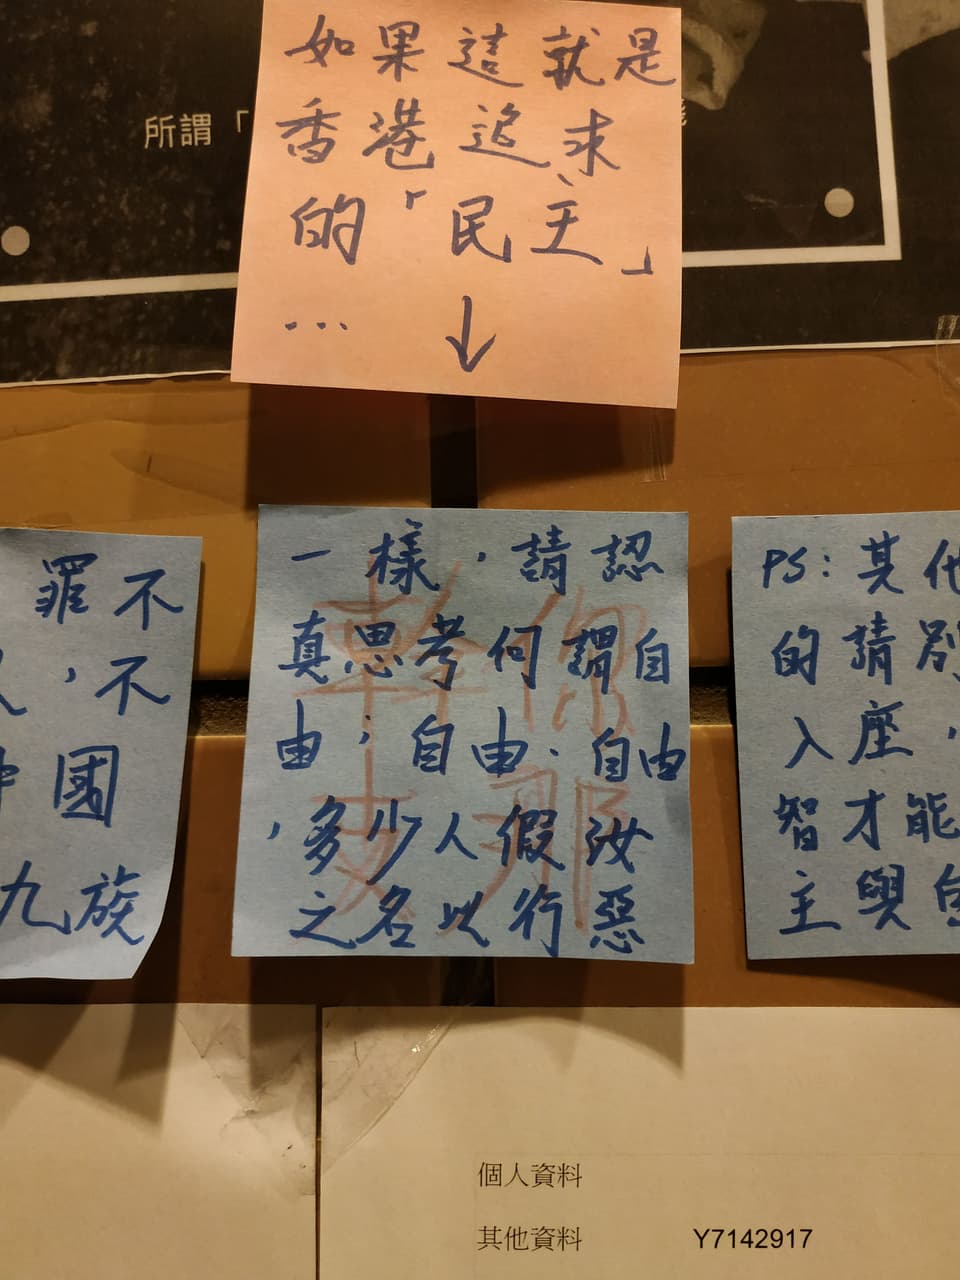 所謂「
如果這就是
香港追求
的「民主」
... ↓
罪不
，不
國
九族
一樣，請認
真思考何謂自
由；自由、自由
，多少人假汝
之名以行惡
幹你
支那
PS：其他
的請別
入座，
智才能
主與自
個人資料
其他資料 Y7142917